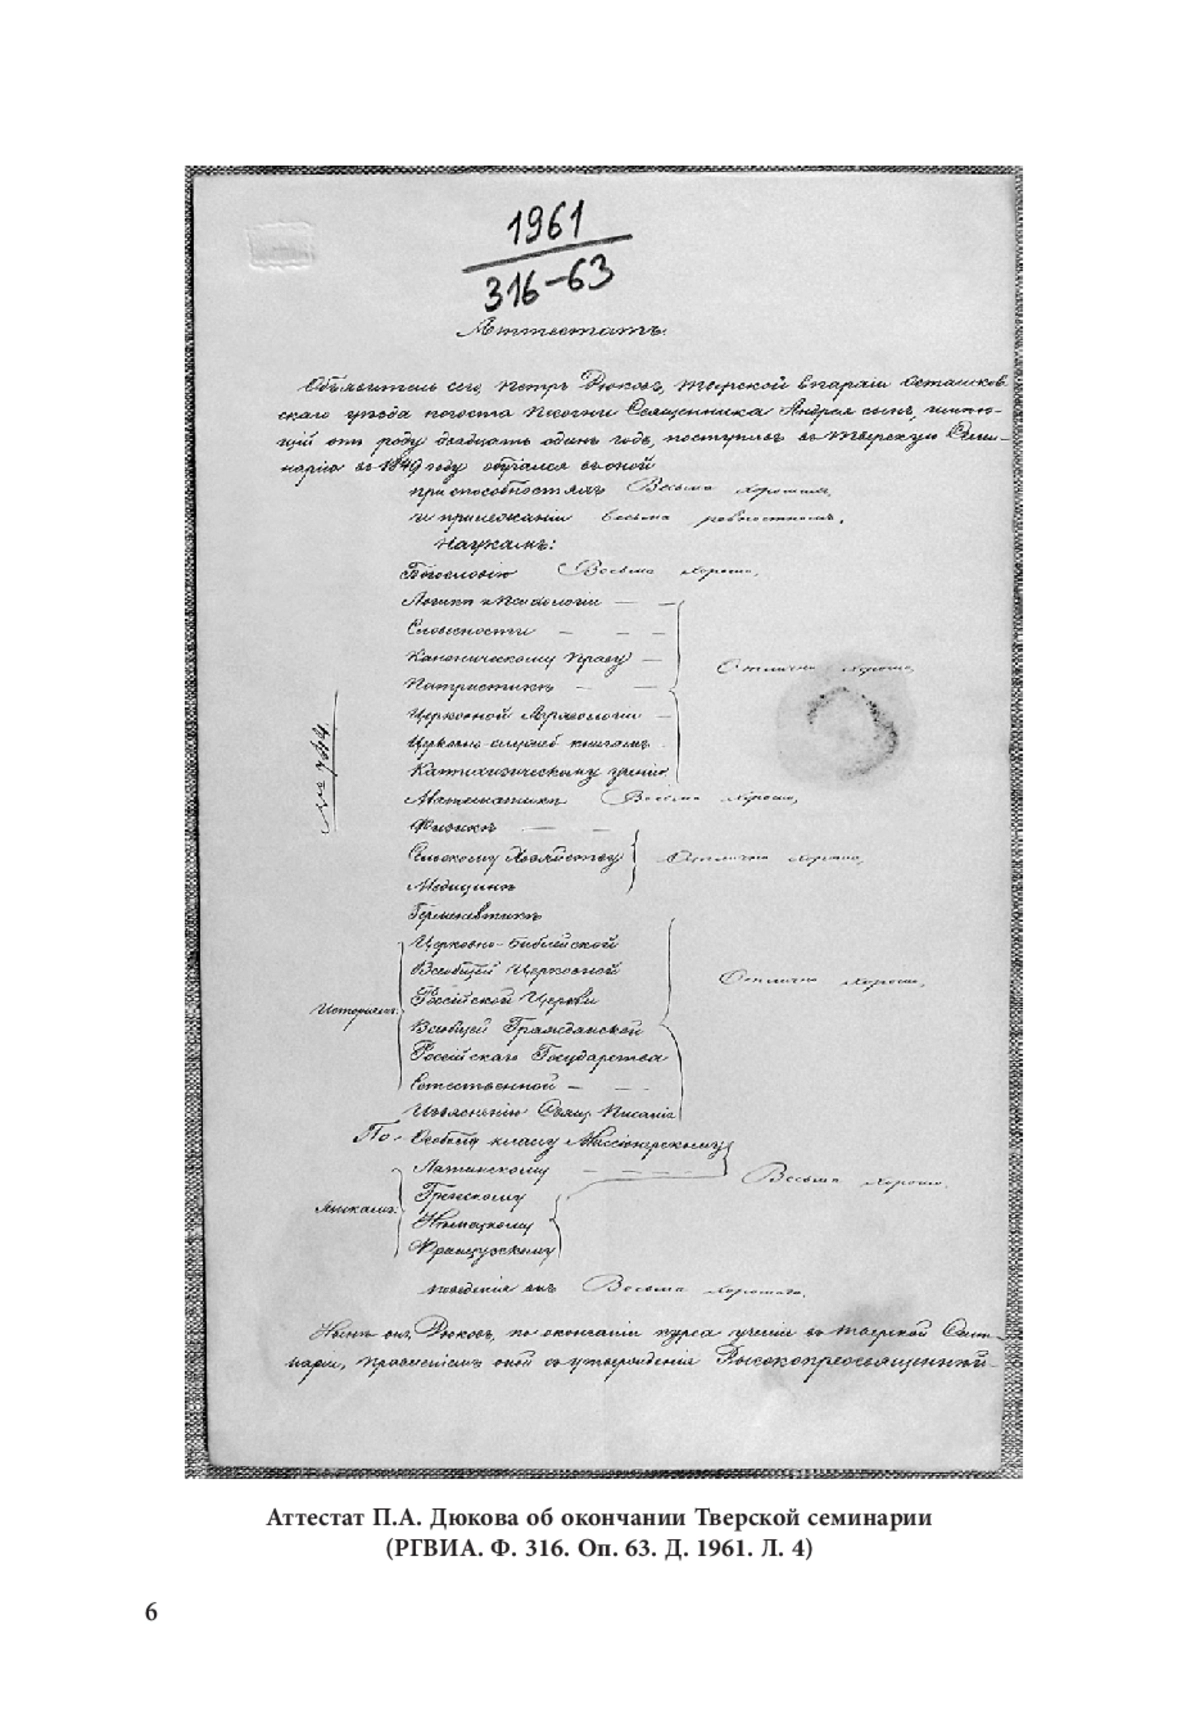 1961
316-63
Аттестатъ.
Объявитель сего, Петръ Дюковъ, Тверской Епархіи Осташков-
скаго уѣзда погоста Священника Андрея сынъ, имѣю-
щій отъ роду двадцать одинъ годъ, поступивъ въ Тверскую Семи-
нарію въ 1849 году обучался въ оной
при способностяхъ Весьма хорошихъ,
и прилежаніи весьма ревностномъ,
Наукамъ:
Богословію Весьма хорошо,
Логикѣ и Психологіи — —
Словесности — — —
Каноническому Праву —
Патристикѣ — — Отлично хорошо,
Церковной Археологіи —
Церковно-служеб. книгамъ
Катихизическому ученію
Математикѣ Весьма хорошо,
Физикѣ — —
Сельскому Хозяйству Отлично хорошо,
Медицинѣ
Герменевтикѣ
Церковно-Библейской
Всеобщей Церковной Отлично хорошо,
Исторіямъ: Россійской Церкви
Всеобщей Гражданской
Россійскаго Государства
Естественной — — —
Изъясненію Свящ. Писанія
По Особому классу Миссіонерскому
Латинскому — — — Весьма хорошо,
Языкамъ: Греческому
Нѣмецкому
Французскому
поведенія онъ Весьма хорошаго.
Нынѣ онъ, Дюковъ, по окончаніи курса ученія въ Тверской Семи-
наріи, Правленіемъ оной съ утвержденія Высокопреосвященнѣй-
Аттестат П.А. Дюкова об окончании Тверской семинарии
(РГВИА. Ф. 316. Оп. 63. Д. 1961. Л. 4)
6